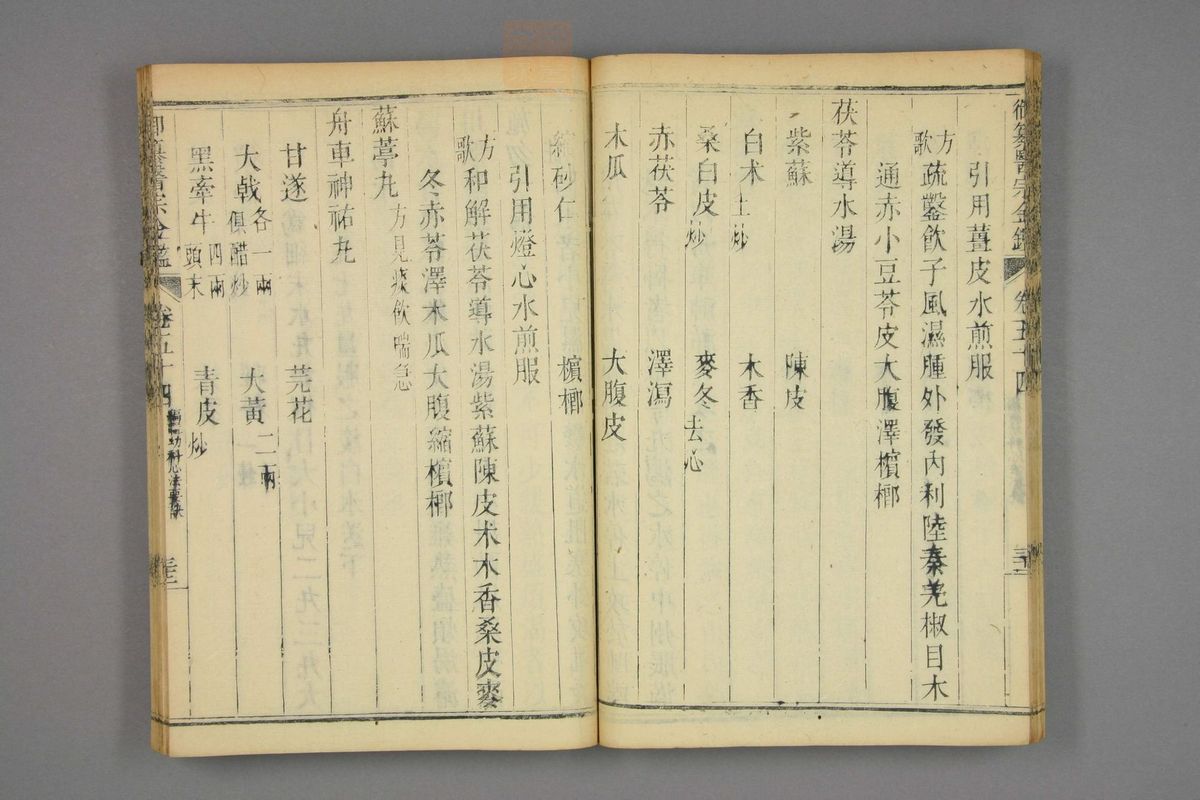 御纂醫宗金鑑 卷五十四
引用薑皮水煎服
方歌 疏鑿飲子風濕腫外發內利陸秦羌椒目木
通赤小豆苓皮大腹澤檳榔
茯苓導水湯
紫蘇 陳皮
白术 土炒 木香
桑白皮 炒 麥冬 去心
赤茯苓 澤瀉
木瓜 大腹皮
縮砂仁 檳榔
引用燈心水煎服
方歌 和解茯苓導水湯紫蘇陳皮术木香桑皮麥
冬赤苓澤木瓜大腹縮檳榔
蘇葶丸 方見痰飲喘急
舟車神祐丸
甘遂 芫花
大戟 各一兩俱醋炒 大黃 二兩
黑牽牛 四兩頭末 青皮 炒
御纂醫宗金鑑 卷五十四 幼科心法要訣